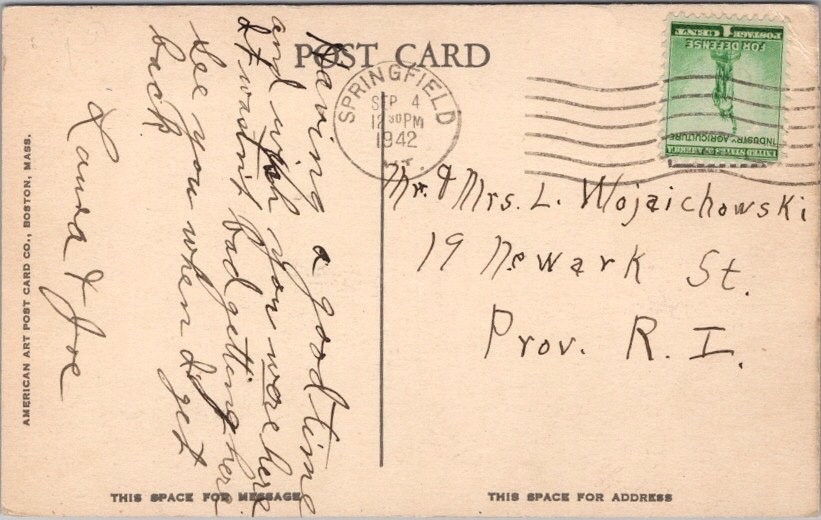 POST CARD
SPRINGFIELD
SEP 4
12 30 PM
1942
VT.
UNITED STATES OF AMERICA
INDUSTRY AGRICULTURE
FOR DEFENSE
1 CENT
POSTAGE
Having a good time
and wish you were here
It wasn't bad getting here
See you when I get
back
Laura & Joe
Mr. & Mrs. L. Wojaichowski
19 Newark St.
Prov. R. I.
AMERICAN ART POST CARD CO., BOSTON, MASS.
THIS SPACE FOR MESSAGE
THIS SPACE FOR ADDRESS